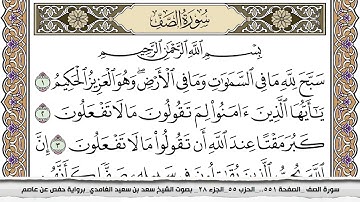 سُورَةُ الصَّفِّ
بِسْمِ اللَّهِ الرَّحْمَٰنِ الرَّحِيمِ
سَبَّحَ لِلَّهِ مَا فِي السَّمَاوَاتِ وَمَا فِي الْأَرْضِ ۖ وَهُوَ الْعَزِيزُ الْحَكِيمُ ١
يَا أَيُّهَا الَّذِينَ آمَنُوا لِمَ تَقُولُونَ مَا لَا تَفْعَلُونَ ٢
كَبُرَ مَقْتًا عِندَ اللَّهِ أَن تَقُولُوا مَا لَا تَفْعَلُونَ ٣ إِنَّ
اللَّهَ يُحِبُّ الَّذِينَ يُقَاتِلُونَ فِي سَبِيلِهِ صَفًّا كَأَنَّهُم
سورة الصف _الصفحة ٥٥١_ الحزب ٥٥_الجزء ٢٨_ بصوت الشيخ سعد بن سعيد الغامدي_برواية حفص عن عاصم